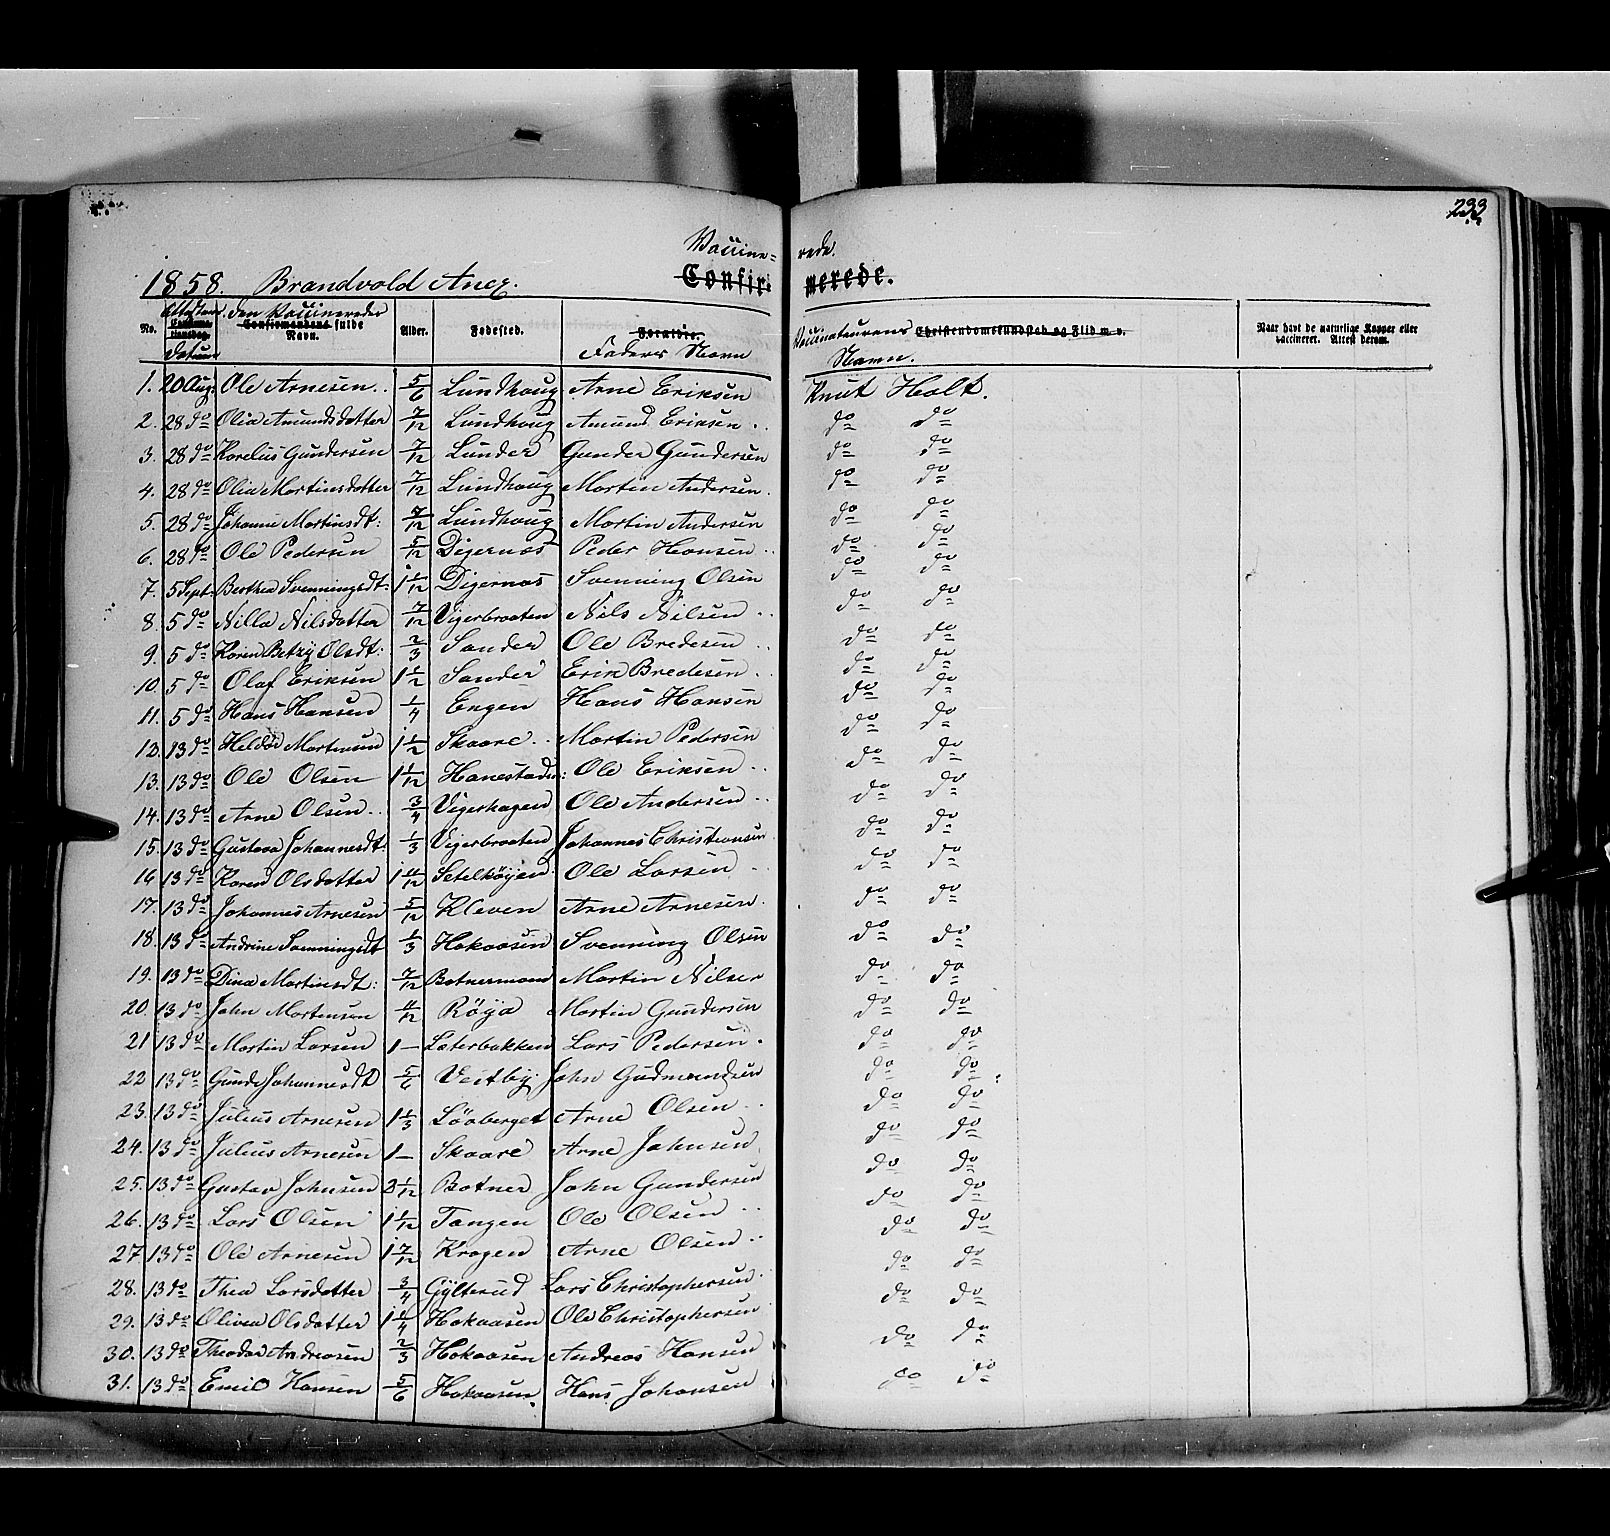 233
Vaccine= rede.
1858. Brandvold Anex. Confir= merede.
No. Attestens Datum den Vaccineredes fulde Navn. Alder. Fødested. Forældre. Faders Navn Vaccinateurens Navn. Christendomskundskab og Flid m. v. Naar havt de naturlige Kopper eller vaccineret. Attest derom.
1. 20 Aug. Ole Arnesen 5/6 Lundhaug Arne Eriksen Knut Holt.
2. 28 do Olia Amundsdatter 7/12 Lundhaug Amund Eriksen do do
3. 28 do Karelius Gundersen 7/12 Lunder Gunder Gundersen do do
4. 28 do Olia Martinsdatter 7/12 Lundhaug Martin Andersen do do
5. 28 do Johanne Martinsdt: 7/12 Lundhaug Martin Andersen do do
6. 28 do Ole Pedersen 5/12 Digernæs Peder Hansen do do
7. 5 Sept. Berthea Svenningsdt: 1 1/12 Digernæs Svenning Olsen do do
8. 5 do Nilla Nilsdatter 7/12 Vigerbraaten Nils Nilsen do do
9. 5 do Karen Betzy Olsdt: 2/3 Sander Ole Bredesen do do
10. 5 do Olaf Eriksen 1 1/2 Sander Erik Bredesen do do
11. 5 do Hans Hansen 1/4 Engen Hans Hansen do do
12. 13 do Martinsen 1 1/2 Skaare Martin Pedersen do do
13. 13 do Ole Olsen 1 1/12 Hanestadn: Ole Eriksen do do
14. 13 do Arne Olsen 3/4 Vigerhagen Ole Andersen do do
15. 13 do Gustava Johannesdt: 1/3 Vigerbraaten Johannes Christiansen do do
16 13 do Karen Olsdatter 1 Setelhøjen Ole Larsen do do
17. 13 do Johannes Arnesen 5/12 Kleven Arne Arnesen do do
18. 13 do Andrine Svenningsdt 1/3 Hokaasen Svenning Olsen do do
19. 13 do Dina Martinsdt: 7/12 Martin Nilsen do do
20. 13 do John Martensen Røja Martin Gundersen do do
21 13 do Martin Larsen 1 — Laterbakken Lars Pedersen do do
22 13 do Gunde Johannesdt 5/6 Veitby John Gudmundsen do do
23. 13 do Julius Arnesen 1 1/3 Løvberget Arne Olsen do do
24. 13 do Julius Arnesen 1 — Skaare Arne Johnsen do do
25. 13 do Gustav Johnsen 2 1/12 Botner John Gundersen do do
26. 13 do Lars Olsen 1 1/12 Tangen Ole Olsen do do
27 13 do Ole Arnesen 1 7/12 Krogen Arne Olsen do do
28. 13 do Thea Larsdatter 3/4 Gylterud Lars Christophersen do do
29. 13 do Olivea Olsdatter 1 1/4 Hokaasen Ole Christophersen do do
30. 13 do Theodor Andreasen 2/3 Hokaasen Andreas Hansen do do
31. 13 do Emil Hansen 5/6 Hokaasen. Hans Johansen do do